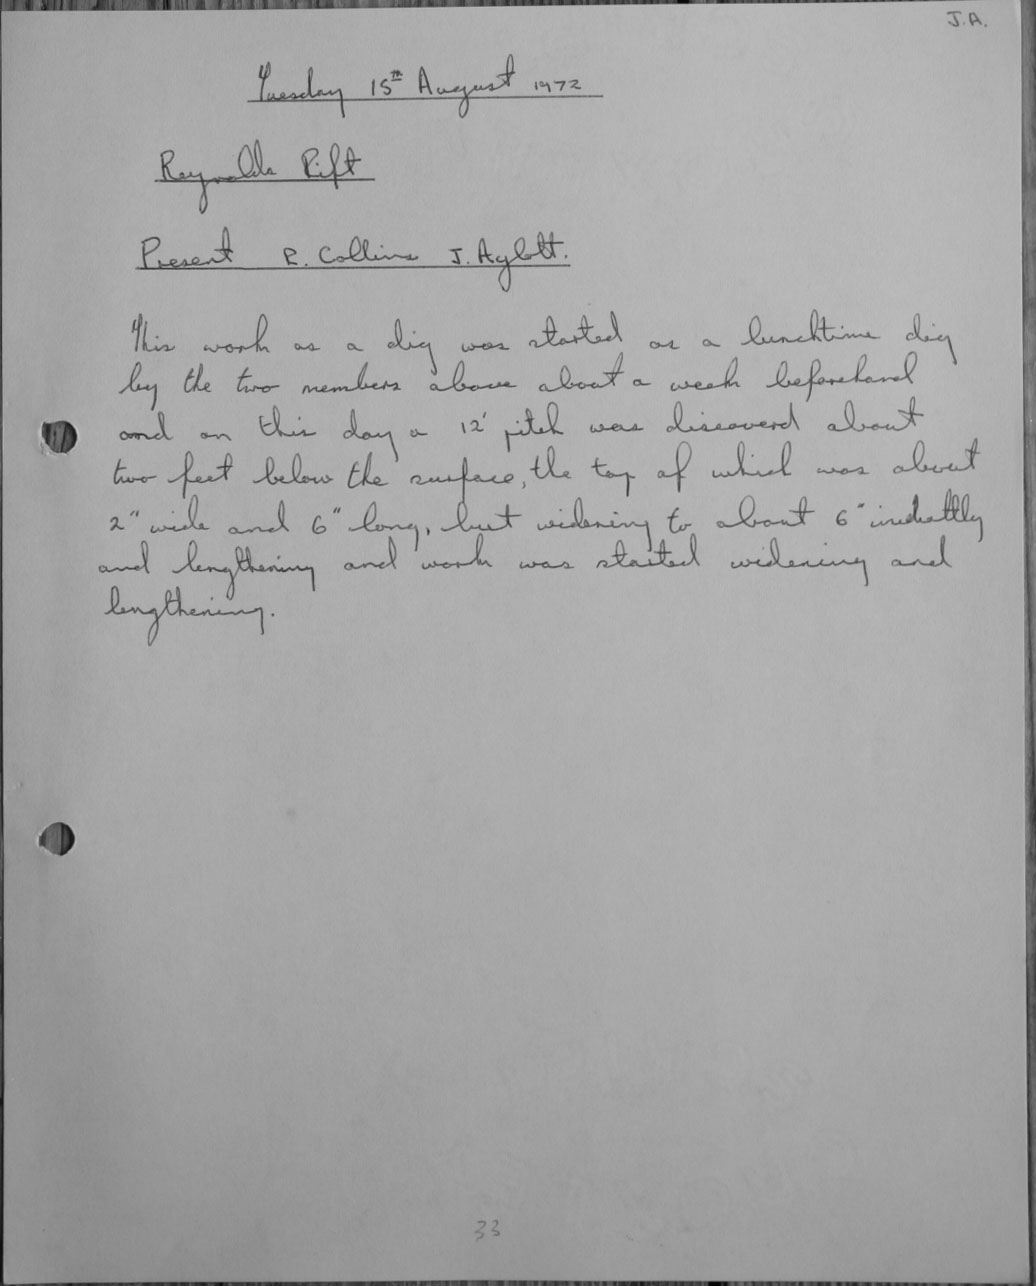 J.A.
Tuesday 15th August 1972
Reynolds Rift
Present R. Collins J. Aylott.
This work as a dig was started as a lunchtime dig
by the two members above about a week beforehand
and on this day a 12' pitch was discoverd about
two feet below the surface, the top of which was about
2" wide and 6" long, but widening to about 6"
and lengthening and work was started widening and
lengthening.
33